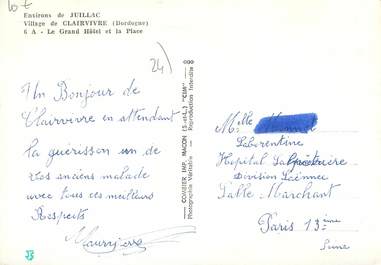 10 €
Environs de JUILLAC
Village de CLAIRVIVRE (Dordogne)
6 A - Le Grand Hôtel et la Place
24)
Un Bonjour de
Clairvivre en attendant
la guérisson un de
vos anciens malade
avec tous ces meilleurs
Respects
COMBIER IMP. MACON (S.-et-L.) "CIM"
Photographie Véritable - Reproduction Interdite
Mlle
Laborentine
Hopital Salpêtrière
Division Laënnec
Salle Marchant
Paris 13ème
Seine